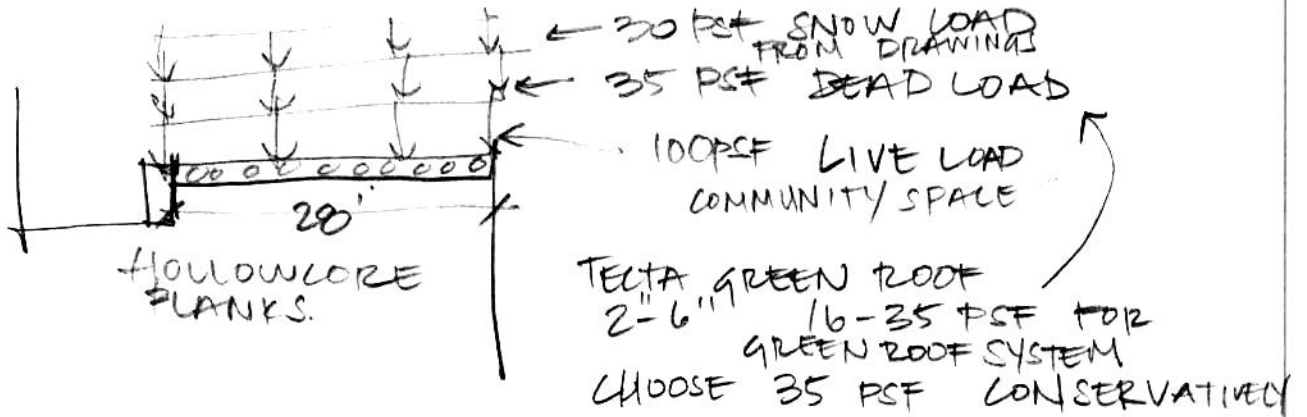 ← 30 PSF SNOW LOAD
FROM DRAWINGS
← 35 PSF DEAD LOAD
100PSF LIVE LOAD
COMMUNITY SPACE
28'
HOLLOWCORE
PLANKS.
TECTA GREEN ROOF
2"-6" 16-35 PSF FOR
GREEN ROOF SYSTEM
CHOOSE 35 PSF CONSERVATIVELY